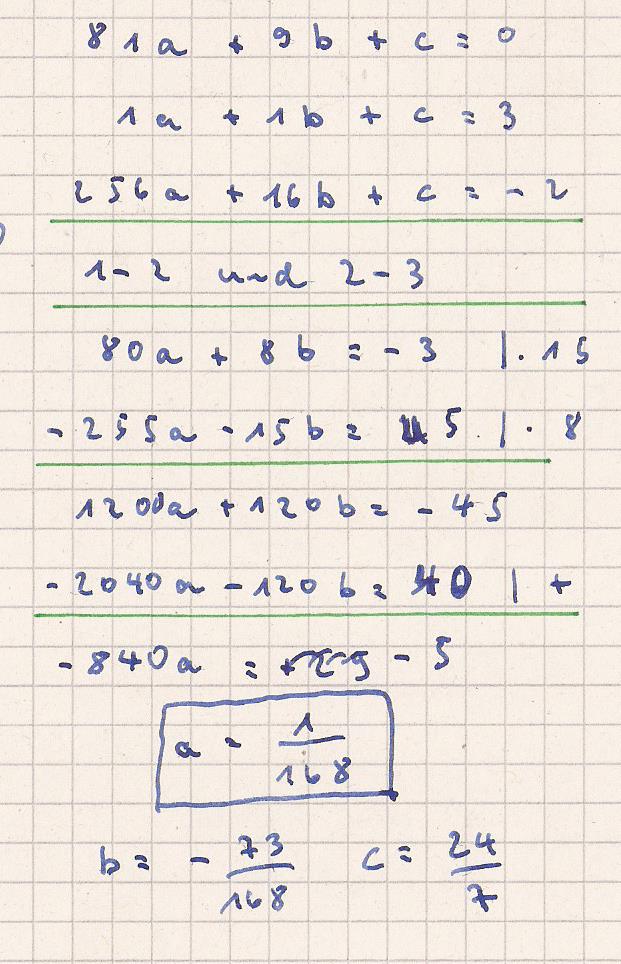 81a + 9b + c = 0
1a + 1b + c = 3
256a + 16b + c = - 2
1 - 2 und 2 - 3
80a + 8b = - 3 | · 15
- 255a - 15b = 5 | · 8
1200a + 120b = - 45
- 2040a - 120b = 40 | +
- 840a = - 5
a = 1/168
b = - 73/168 c = 24/7